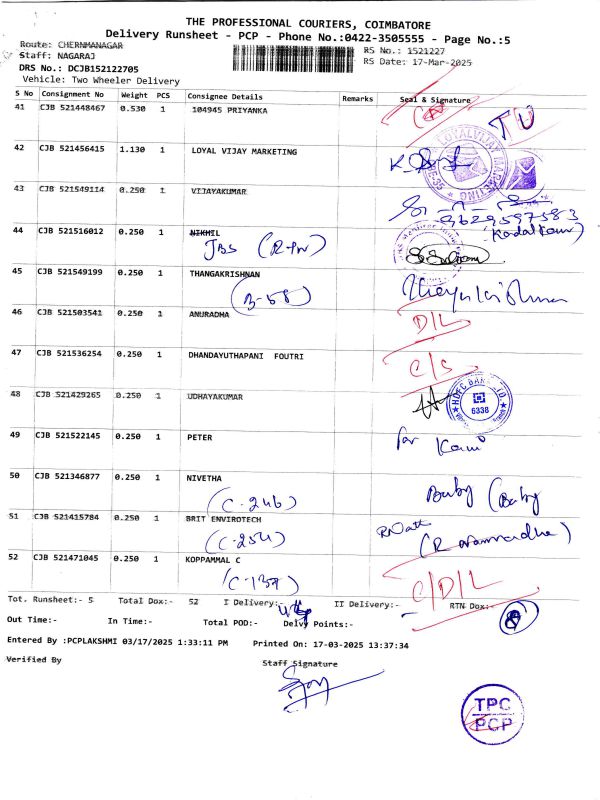 THE PROFESSIONAL COURIERS, COIMBATORE
Delivery Runsheet - PCP - Phone No.:0422-3505555 - Page No.:5
Route: CHERNMANAGAR
Staff: NAGARAJ
RS No.: 1521227
DRS No.: DCJB152122705
RS Date: 17-Mar-2025
Vehicle: Two Wheeler Delivery
S No Consignment No Weight PCS Consignee Details Remarks Seal & Signature
41 CJB 521448467 0.530 1 104945 PRIYANKA
TU
42 CJB 521456415 1.130 1 LOYAL VIJAY MARKETING
LOYAL VIJAY MARKETING
43 CJB 521549114 0.250 1 VIJAYAKUMAR
9629597583
44 CJB 521516012 0.250 1 NIKHIL
JBS
45 CJB 521549199 0.250 1 THANGAKRISHNAN
(B-58)
46 CJB 521503541 0.250 1 ANURADHA
D/L
47 CJB 521536254 0.250 1 DHANDAYUTHAPANI FOUTRI
C/S
48 CJB 521429265 0.250 1 UDHAYAKUMAR
HDFC BANK LTD
6338
49 CJB 521522145 0.250 1 PETER
for Kani
50 CJB 521346877 0.250 1 NIVETHA
(C-246)
Baby (Baby
51 CJB 521415784 0.250 1 BRIT ENVIROTECH
(C-254)
52 CJB 521471045 0.250 1 KOPPAMMAL C
(C-137)
C/D/L
Tot. Runsheet:- 5 Total Dox:- 52 I Delivery:- II Delivery:- RTN Dox:-
8
Out Time:- In Time:- Total POD:- Delvy Points:-
Entered By :PCPLAKSHMI 03/17/2025 1:33:11 PM Printed On: 17-03-2025 13:37:34
Verified By Staff Signature
TPC
PCP